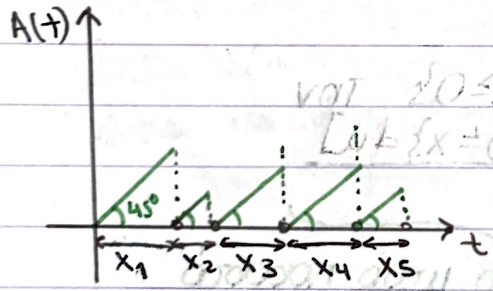 A(t)
45°
t
X₁ X₂ X₃ X₄ X₅